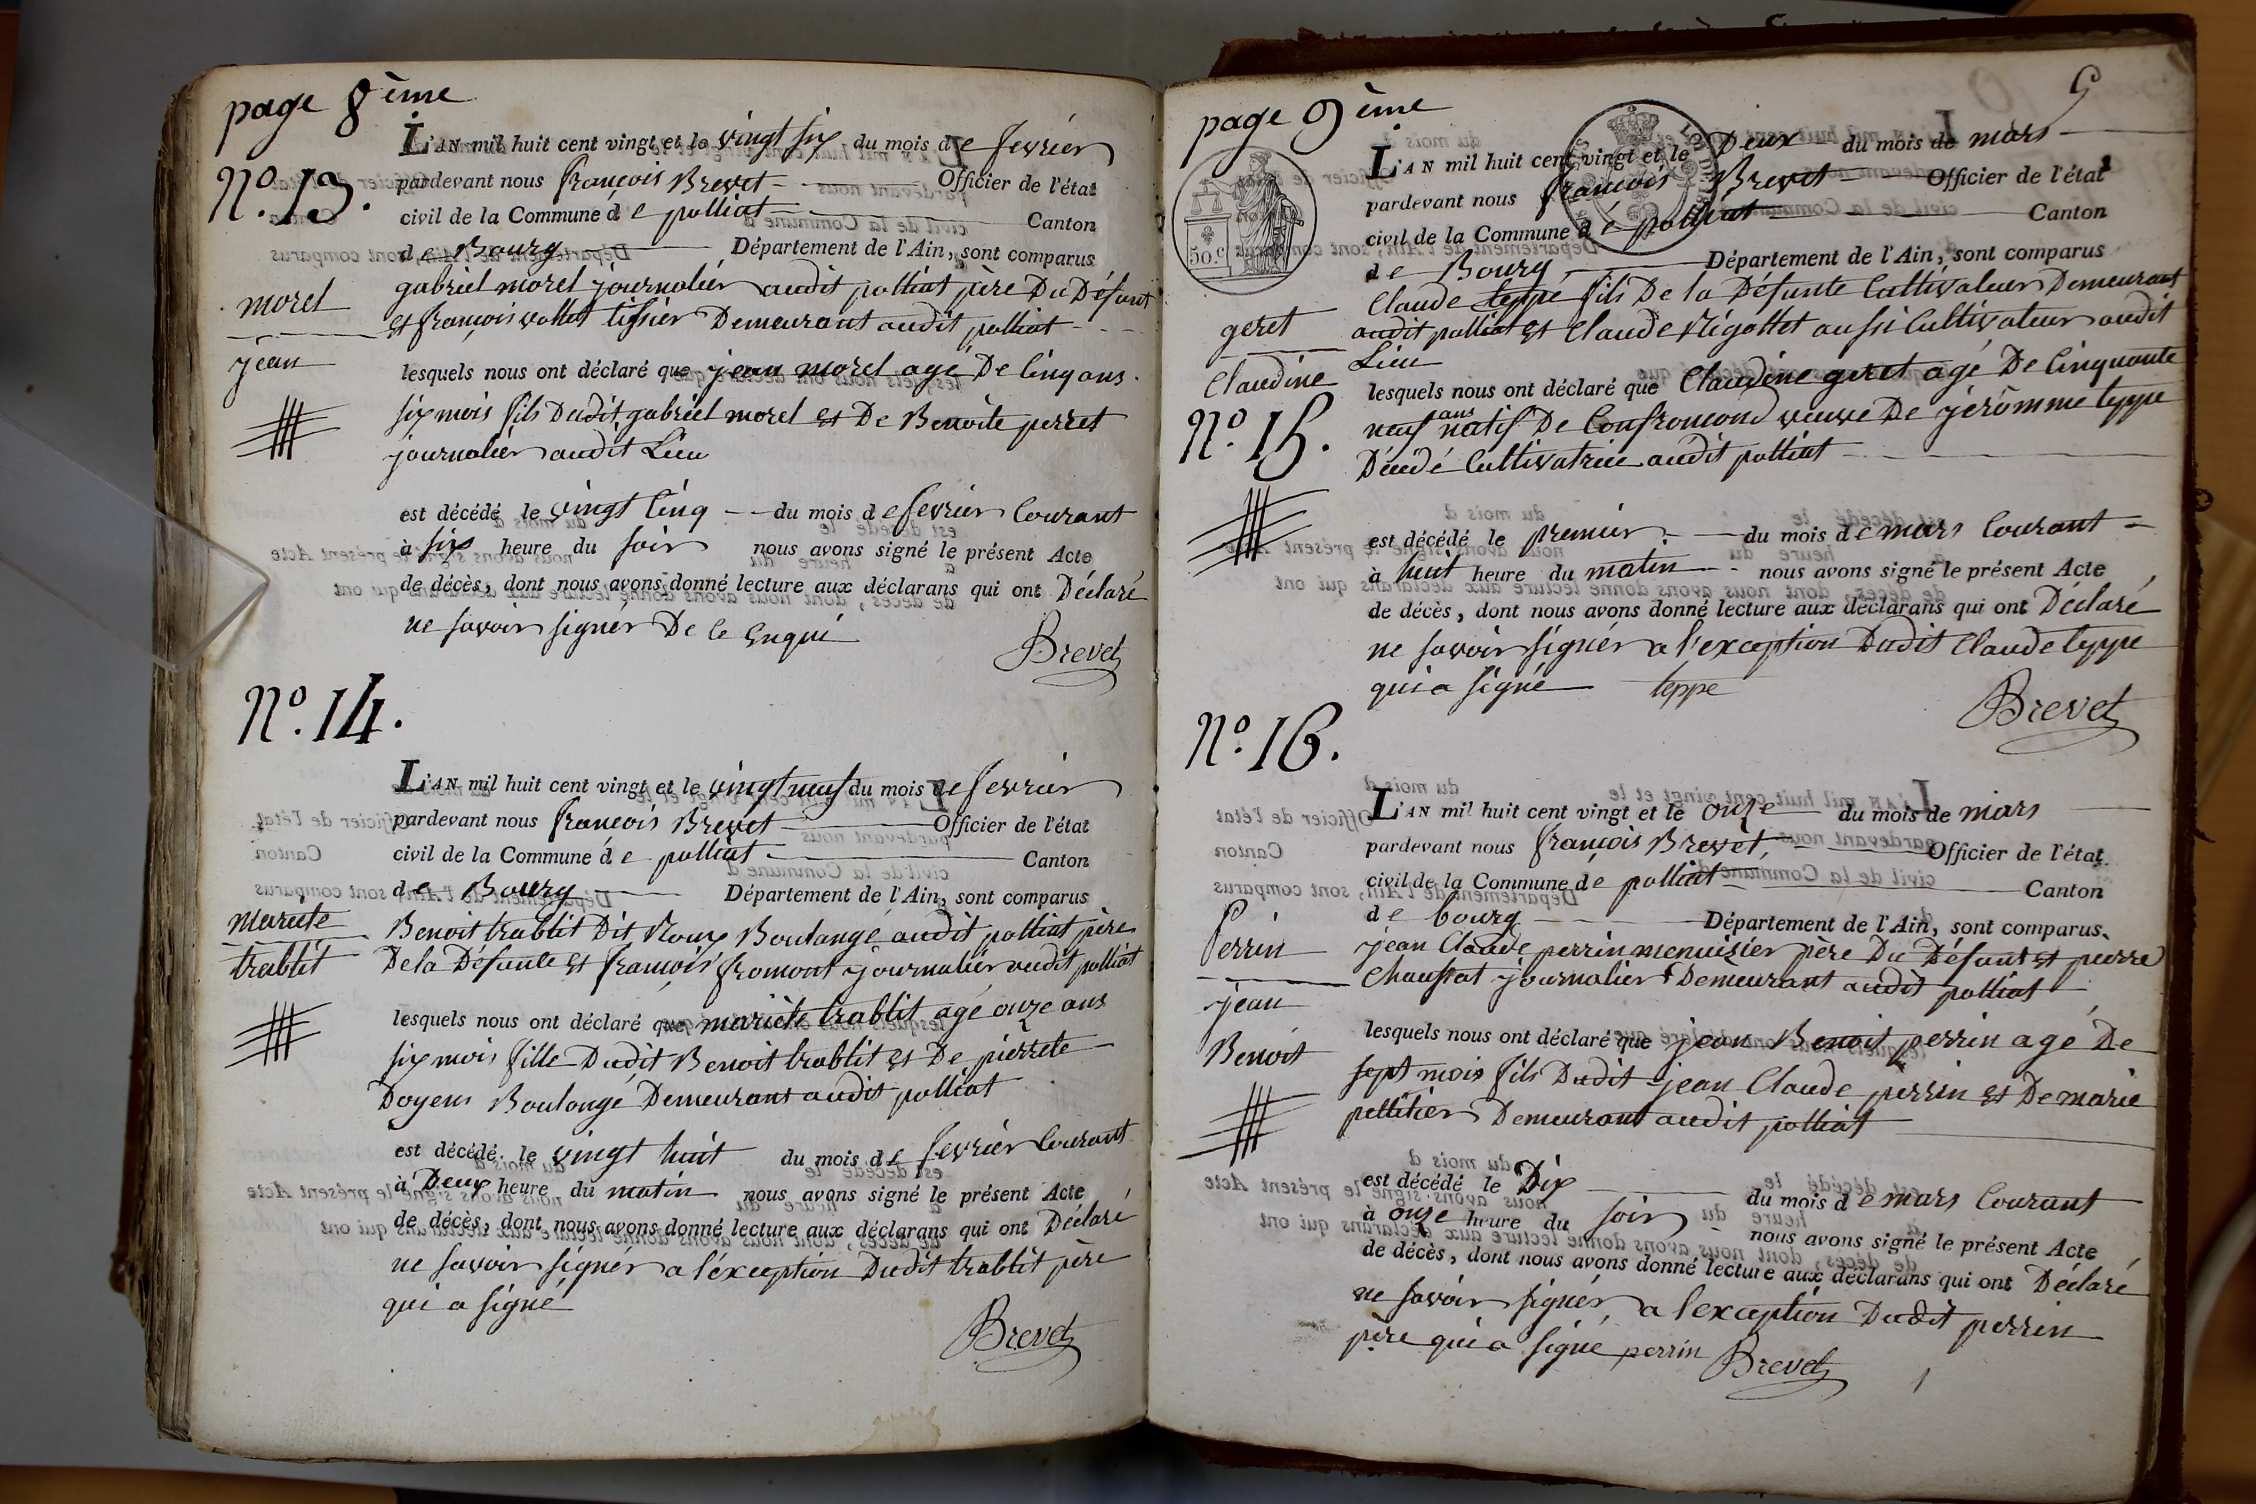 page 8ème
N°. 13.
L'AN mil huit cent vingt et le vingt six du mois de fevrier
pardevant nous françois Brevet Officier de l'état
civil de la Commune de polliat Canton
de Bourg Département de l'Ain, sont comparus
gabriel morel journalier audit polliat père Du Défunt
et françois vollet tissier Demeurant audit polliat
morel
jean
lesquels nous ont déclaré que jean morel agé De cinq ans
six mois fils Dudit gabriel morel et De Benoite perret
journalier audit Lieu
est décédé le vingt cinq du mois de fevrier Courant
à six heure du soir nous avons signé le présent Acte
de décès, dont nous avons donné lecture aux déclarans qui ont Déclaré
ne savoir signér De ce enqui
Brevet
N°. 14.
L'AN mil huit cent vingt et le vingt neuf du mois de fevrier
pardevant nous françois Brevet Officier de l'état
civil de la Commune de polliat Canton
de Bourg Département de l'Ain, sont comparus
mariete
trablit
Benoit trablit Dit Roux Boulangé audit polliat père
De la Défunte et françois fromont journalier audit polliat
lesquels nous ont déclaré que mariete trablit agé onze ans
six mois fille Dudit Benoit trablit et De pierrete
Doyens Boulangé Demeurant audit polliat
est décédé le vingt huit du mois de fevrier Courant
à Deux heure du matin nous avons signé le présent Acte
de décès, dont nous avons donné lecture aux déclarans qui ont Déclaré
ne savoir signér a l'éxception Dudit trablit père
qui a signé
Brevet
page 9ème
L'AN mil huit cent vingt et le Deux du mois de mars
pardevant nous françois Brevet Officier de l'état
civil de la Commune de polliat Canton
de Bourg Département de l'Ain, sont comparus
50.c
Claude teppe fils De la Défunte Cultivateur Demeurant
audit polliat et Claude Rigottet aussi Cultivateur audit
Lieu
geret
Claudine
N°. 15.
lesquels nous ont déclaré que Claudine geret agé De Cinquante
neuf ans natif De Confroncond veuve De jerômme teppe
Décédé Cultivatrice audit polliat
est décédé le premier du mois de mars Courant
à huit heure du matin nous avons signé le présent Acte
de décès, dont nous avons donné lecture aux déclarans qui ont Déclaré
ne savoir signér a l'exception Dudit Claude teppe
qui a signé teppe
Brevet
N°. 16.
L'AN mil huit cent vingt et le onze du mois de mars
pardevant nous françois Brevet Officier de l'état
civil de la Commune de polliat Canton
de bourg Département de l'Ain, sont comparus
Perrin
jean
Benoit
jean Claude perrin menuisier père Du Défunt et pierre
Chaussat journalier Demeurant audit polliat
lesquels nous ont déclaré que jean Benoit perrin agé De
sept mois fils Dudit jean Claude perrin et De marie
pellitier Demeurant audit polliat
est décédé le Dix du mois de mars Courant
à onze heure du soir nous avons signé le présent Acte
de décès, dont nous avons donné lecture aux déclarans qui ont Déclaré
ne savoir signér a l'exception Dudit perrin
père qui a signé perrin Brevet